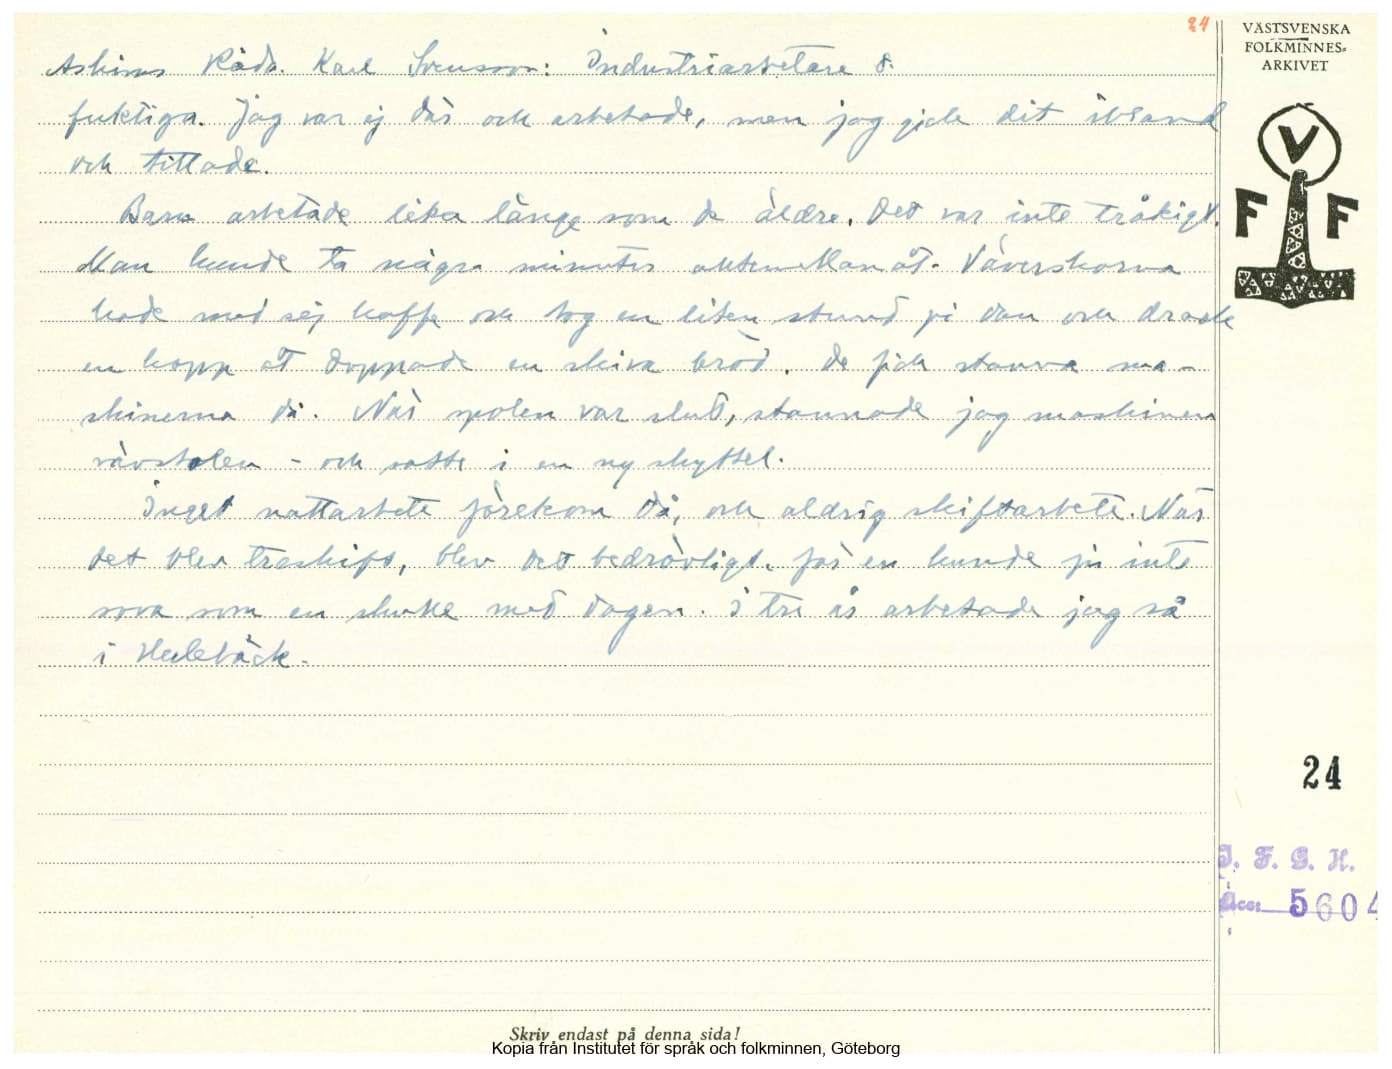 24
VÄSTSVENSKA
FOLKMINNES-
ARKIVET
Askims Råda. Karl Svensson: Industriarbetare 8.
fuktiga. Jag var ej där och arbetade, men jag gick dit ibland
och tittade.
Barn arbetade lika länge som de äldre. Det var inte tråkigt.
Man kunde ta några minuter åt. Väverskorna
hade med sej kaffe och tog en liten stund på dan och drack
en kopp åt doppade en skiva bröd. De fick stanna ma-
skinerna då. När spolen var slut, stannade jag maskinen
vävstolen - och satte i en ny skyttel.
Inget nattarbete förekom då, och aldrig skiftarbete. När
det blev treskift, blev det bedrövligt, för en kunde ju inte
sova som en skulle med dagen. I tre år arbetade jag så
i Hulebäck.
V
F F
24
I. F. G. H.
Acc: 5604
Skriv endast på denna sida!
Kopia från Institutet för språk och folkminnen, Göteborg